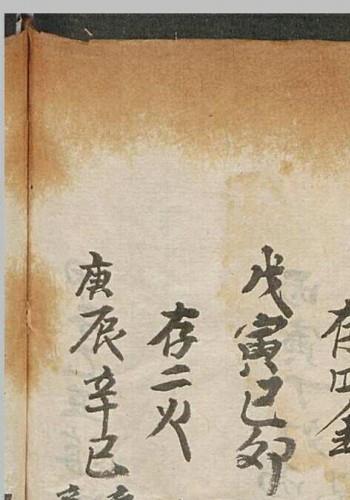 存四金
戊寅己卯
存二火
庚辰辛巳